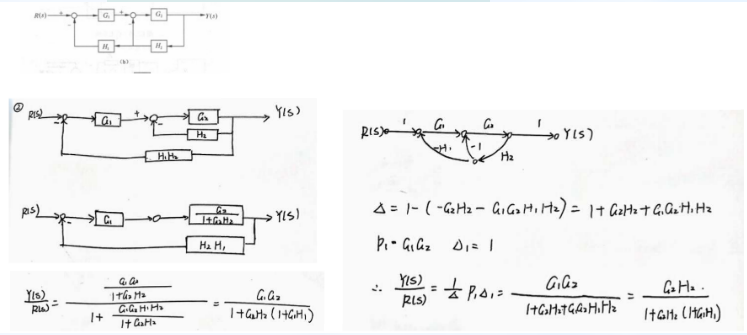 R(s) + G₁ + G₂ Y(s)
H₁ H₂
(b)
②
R(s) G₁ + G₂ Y(s)
- -
H₂
H₁H₂
R(s) G₁ G₂/(1+G₂H₂) Y(s)
-
H₂ H₁
Y(s)/R(s) = (G₁G₂/(1+G₂H₂))/(1+ G₁G₂H₁H₂/(1+G₂H₂)) = G₁G₂/(1+G₂H₂(1+G₁H₁))
R(s) 1 G₁ G₂ 1 Y(s)
-H₁ -1 H₂
Δ = 1-(-G₂H₂-G₁G₂H₁H₂) = 1+G₂H₂+G₁G₂H₁H₂
P₁ = G₁G₂ Δ₁ = 1
∴ Y(s)/R(s) = 1/Δ P₁Δ₁ = G₁G₂/(1+G₂H₂+G₁G₂H₁H₂) = G₂H₂/(1+G₂H₂(1+G₁H₁))